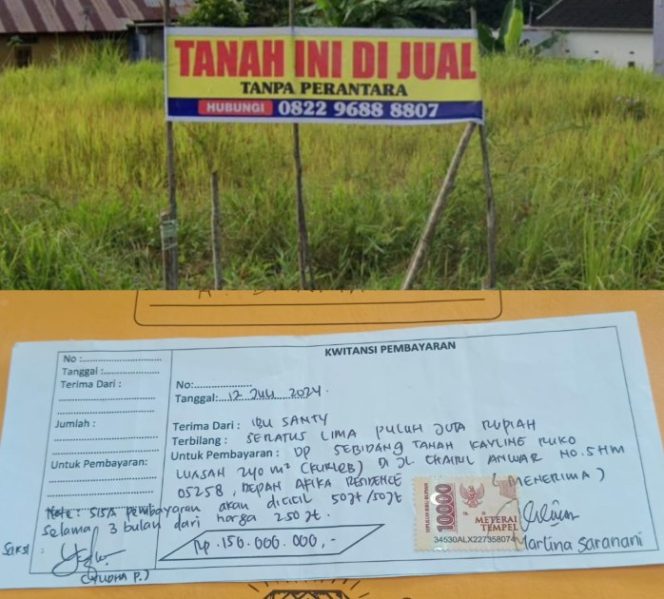 TANAH INI DI JUAL
TANPA PERANTARA
HUBUNGI 0822 9688 8807
KWITANSI PEMBAYARAN
No :
Tanggal :
Terima Dari :
Jumlah :
Untuk Pembayaran:
No:
Tanggal: 12 Juli 2024.
Terima Dari : IBU SANTY
Terbilang : SERATUS LIMA PULUH JUTA RUPIAH
Untuk Pembayaran : DP SEBIDANG TANAH KAVLING RUKO
LUASAN 240 m² (KURLEB) DI JL CHAIRIL ANWAR NO. SHM
05258, DEPAN AFIKA RESIDENCE (MENERIMA)
Note : SISA pembayaran akan dicicil 50jt/50jt
Selama 3 bulan dari harga 250 jt.
Rp. 150.000.000,-
10000
METERAI
TEMPEL
34530ALX227358074
Saksi :
(YUDHA P.)
Martina Saranani